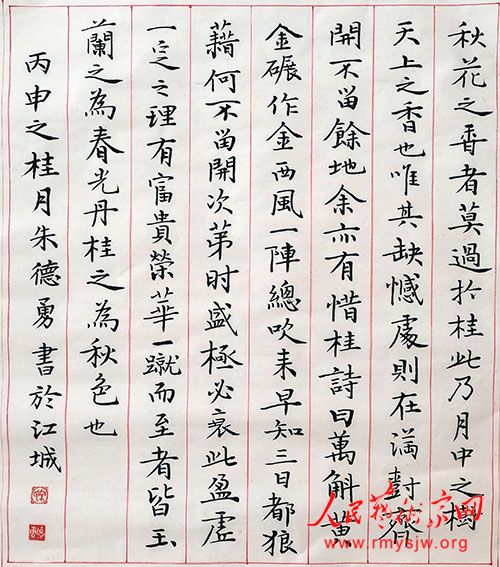 秋花之香者莫過於桂此乃月中之樹
天上之香也唯其缺憾處則在滿對齊
開不留餘地余亦有惜桂詩曰萬斛黃
金碾作金西風一陣總吹来早知三日都狼
藉何不留開次第时盛極必衰此盈虛
一定之理有富貴榮華一蹴而至者皆玉
蘭之為春光丹桂之為秋色也
丙申之桂月朱德勇書於江城
人民藝術家网
www.rmysjw.org